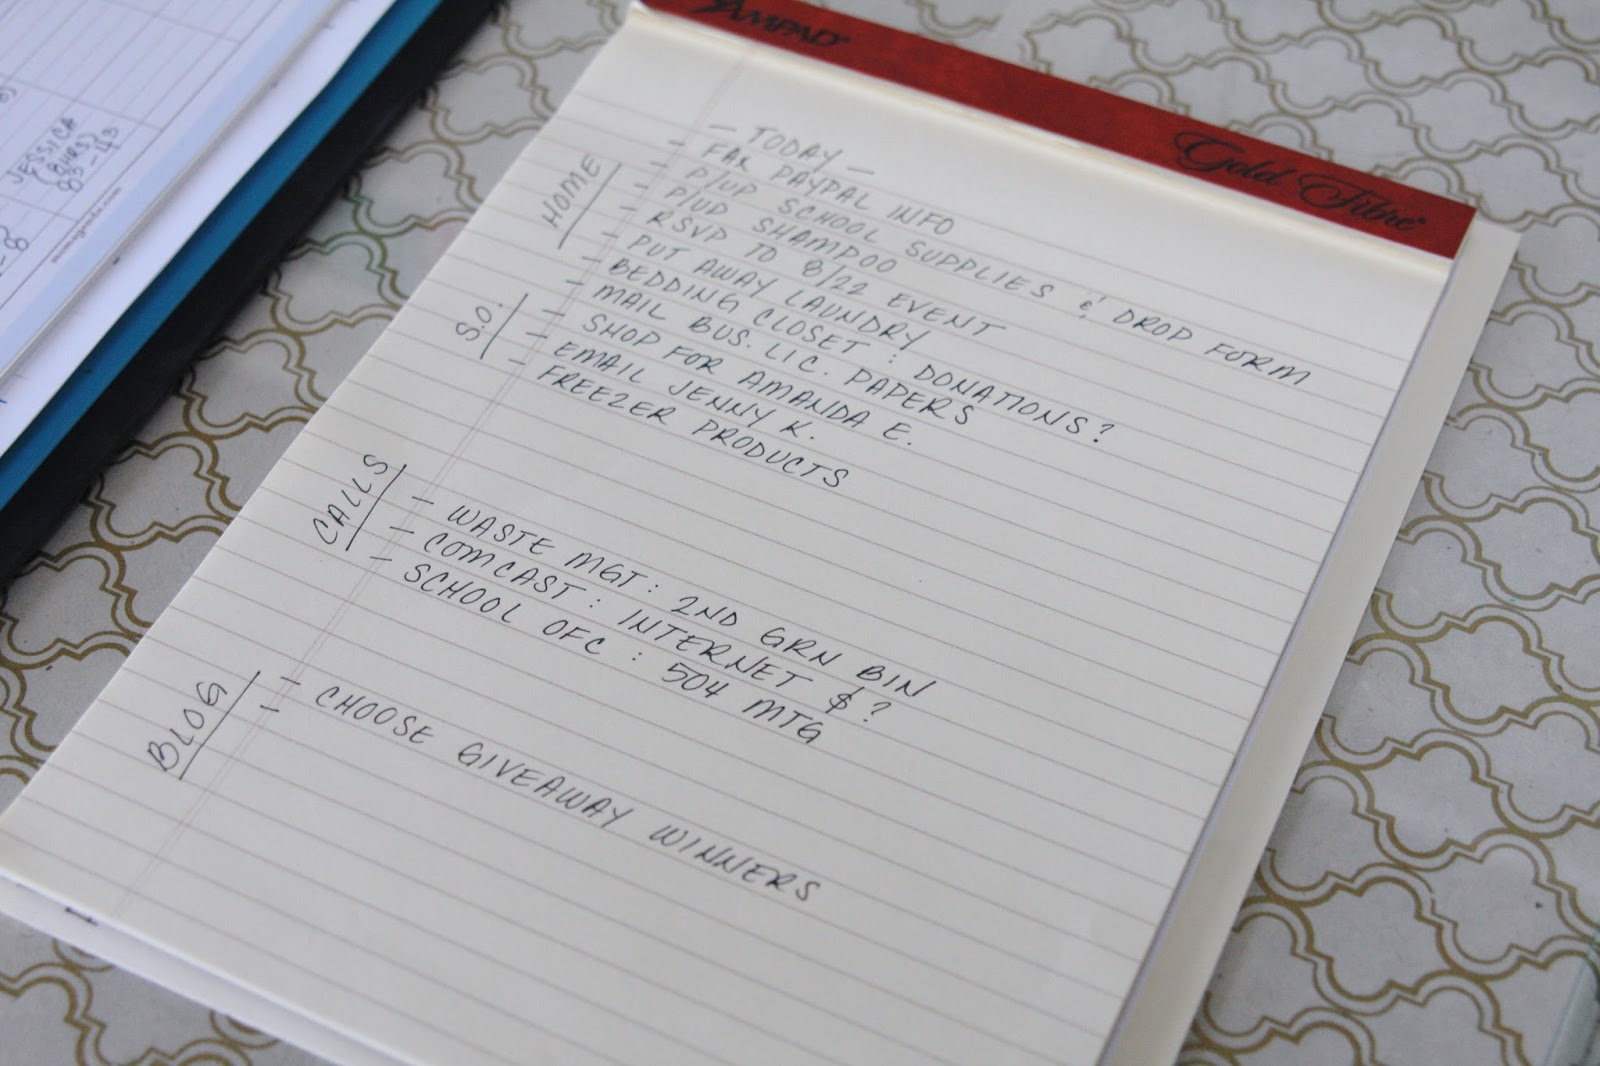 AMPAD
Gold Fibre
- TODAY -
HOME
- FAX PAYPAL INFO
- P/UP SCHOOL SUPPLIES & DROP FORM
- P/UP SHAMPOO
- RSVP TO 8/22 EVENT
- PUT AWAY LAUNDRY
- BEDDING CLOSET : DONATIONS?
S.O.
- MAIL BUS. LIC. PAPERS
- SHOP FOR AMANDA E.
- EMAIL JENNY K.
- FREEZER PRODUCTS
CALLS
- WASTE MGT: 2ND GRN BIN
- COMCAST: INTERNET $?
- SCHOOL OFC : 504 MTG
BLOG
- CHOOSE GIVEAWAY WINNERS
-
JESSICA
(8HRS)